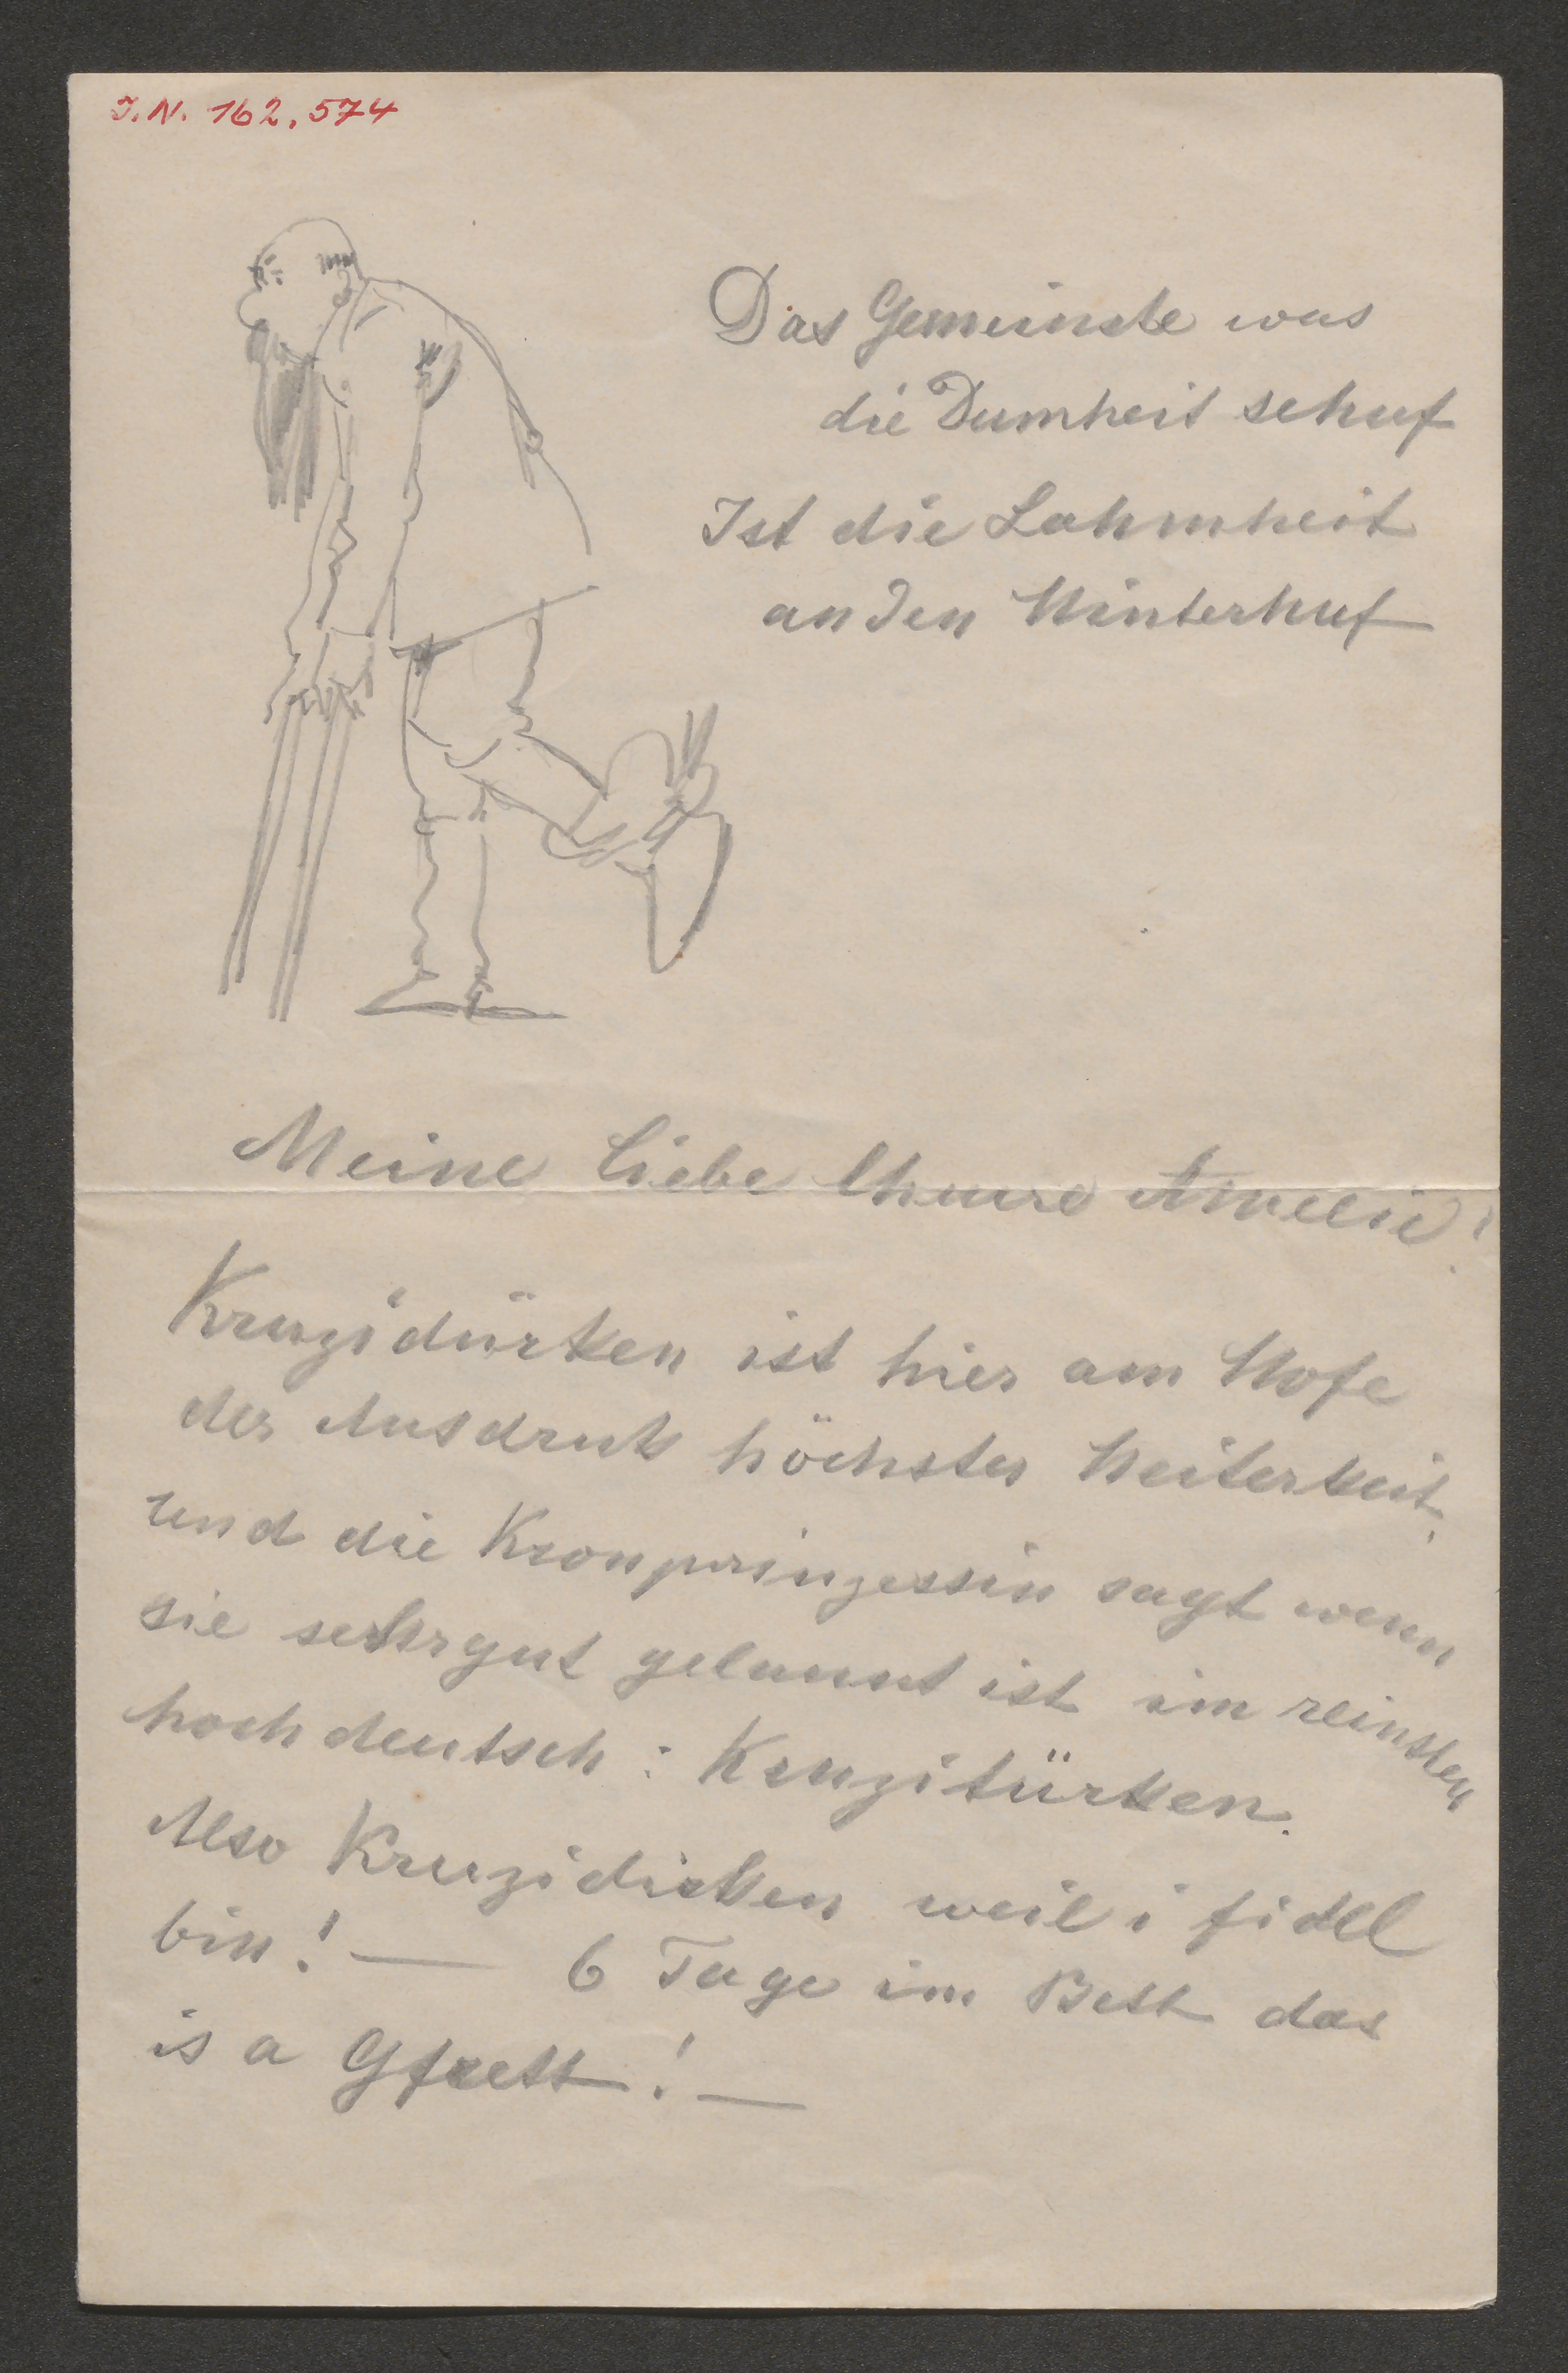 I.N. 162.574
Das Gemeinste was
die Dumheit schuf
Ist die Lahmheit
an den Hinterhuf
Meine liebe theure Amelie!
Kruzidürken ist hier am Hofe
der Ausdruk höchster Heiterkeit.
und die Kronprinzessin sagt wenn
sie sehrgut gelaunt ist im reinsten
hochdeutsch: Kruzitürken.
Also Kruzidirken weil i fidel
bin! — 6 Tage im Bett das
is a Gfrett! —